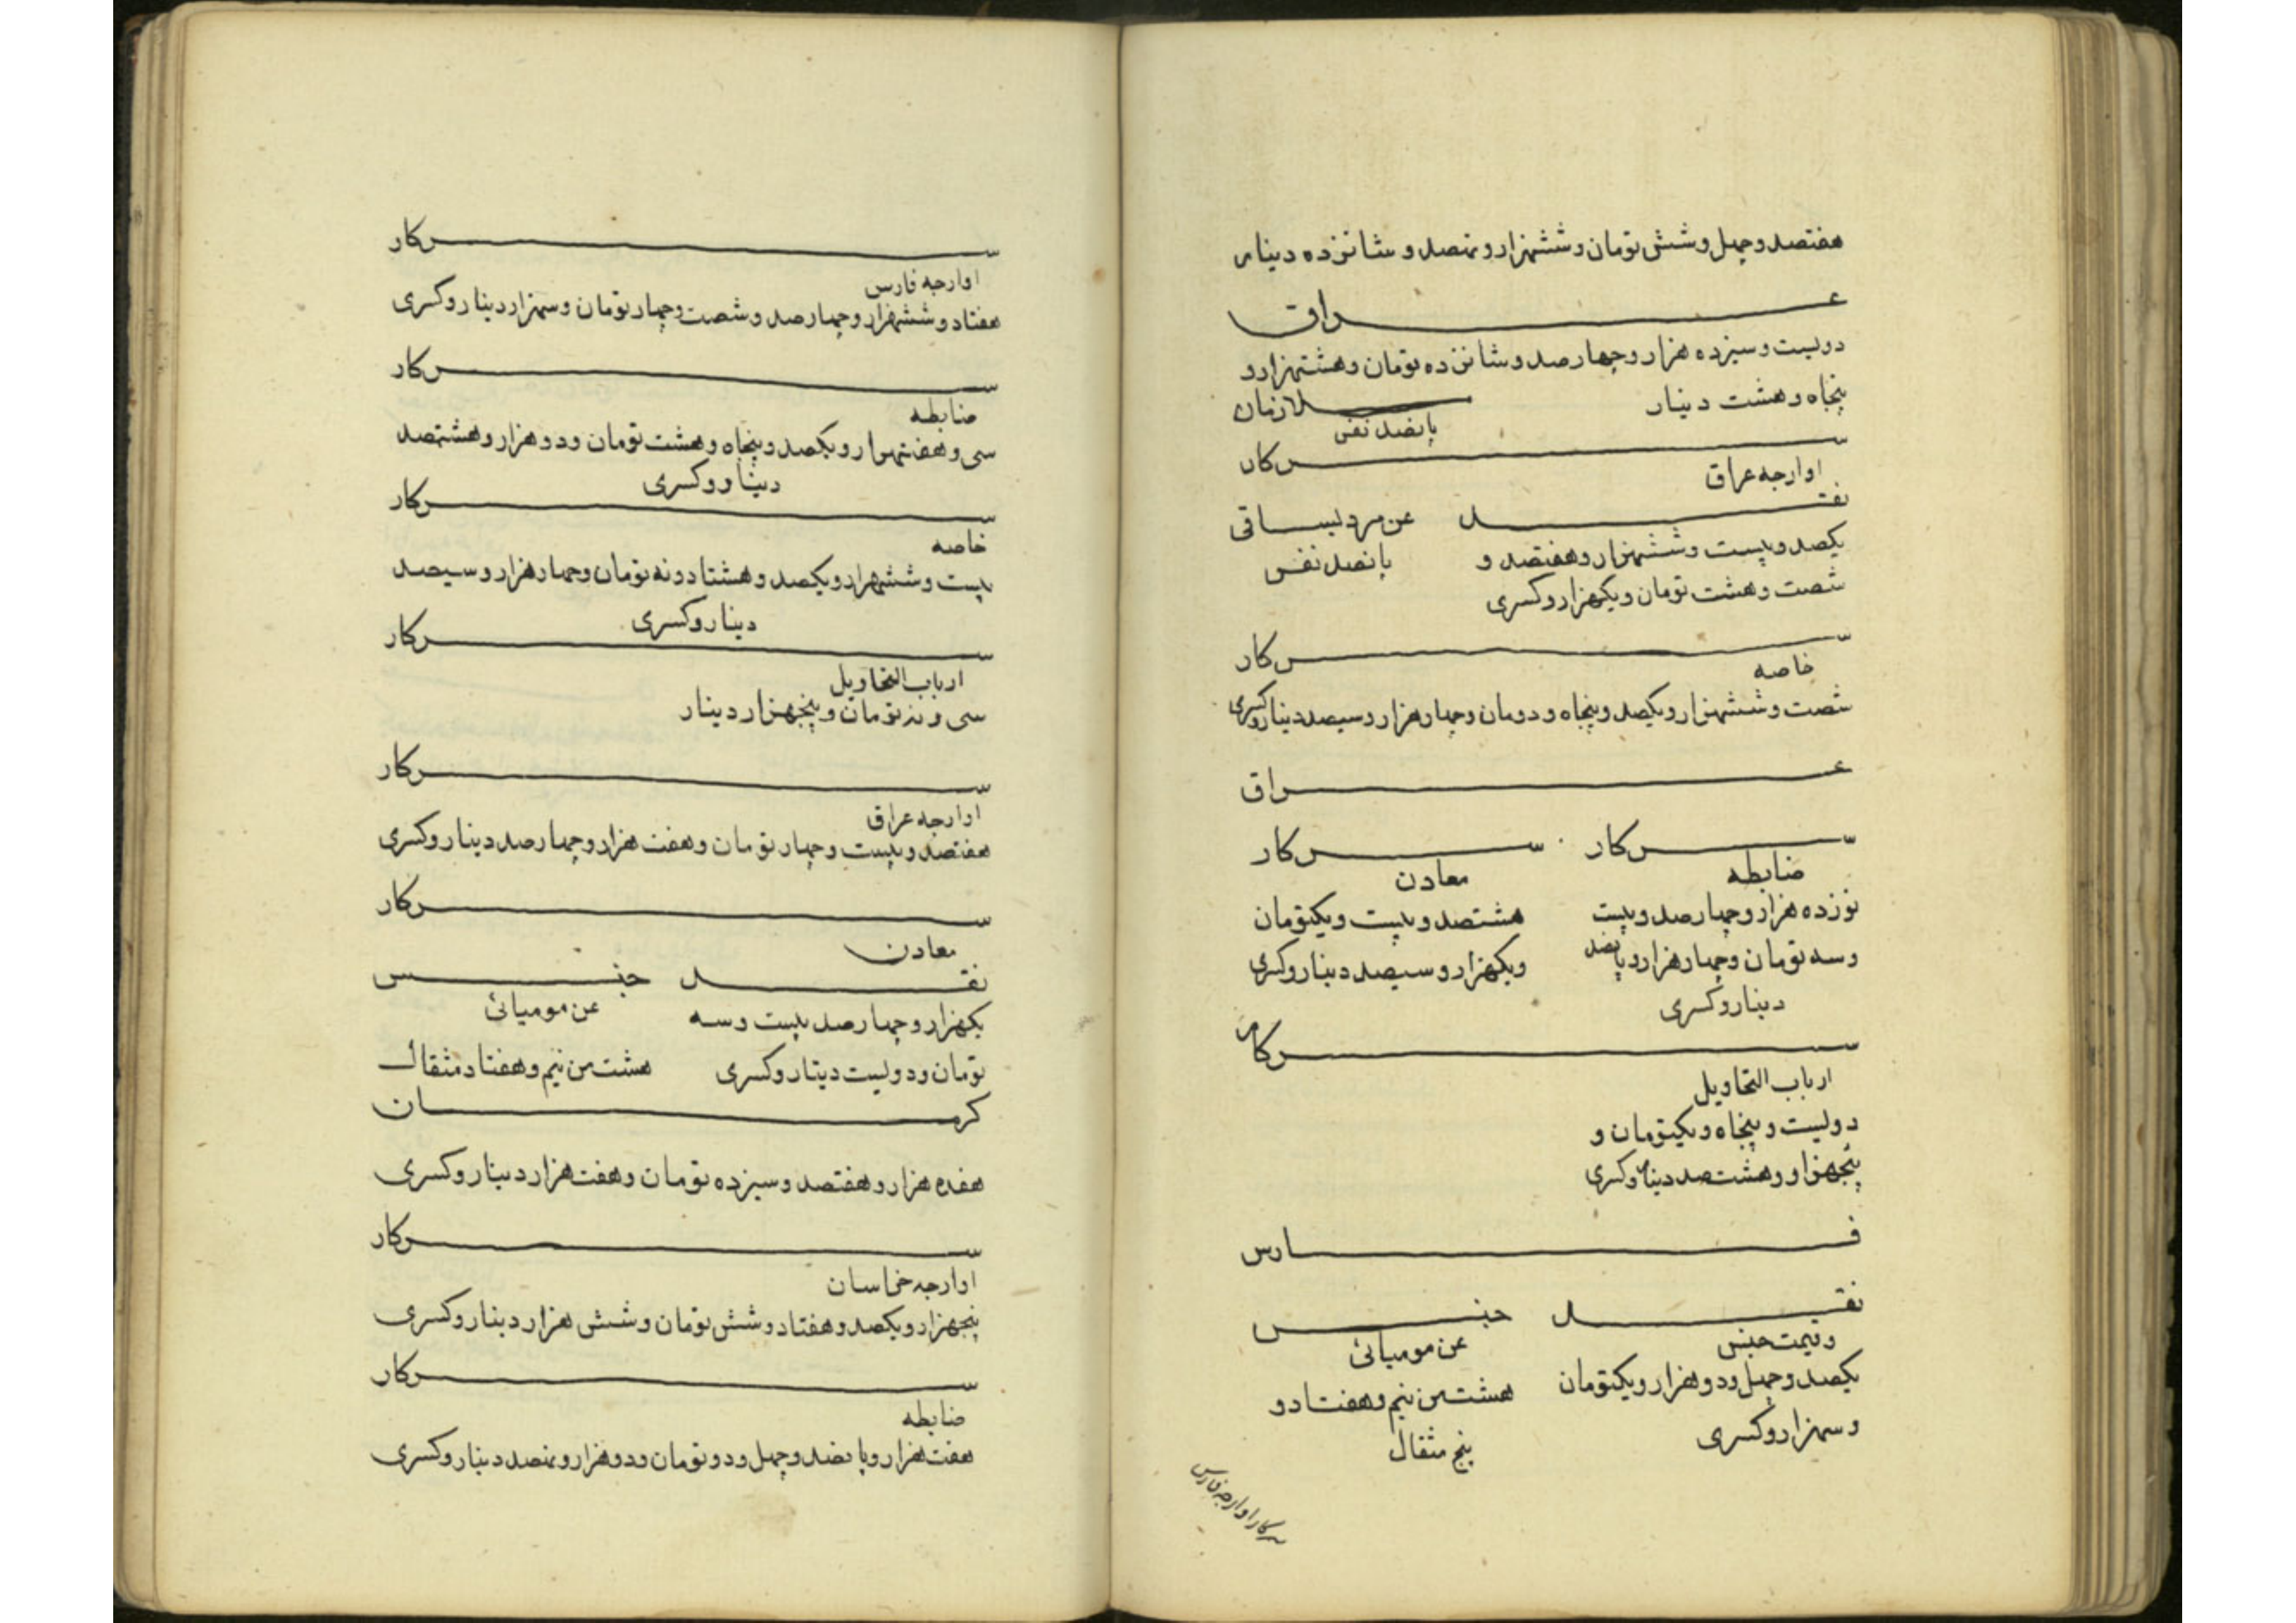 هفتصد و چهل و شش تومان و ششهزار و نهصد و شانزده دینار
عراق
دولیست و سیزده هزار و چهارصد و شانزده تومان و هشتهزار و
پنجاه و هشت دینار
ملازمان
پانصد نفر
سرکار
اوارجه عراق
نقد
یکصد و بیست و ششهزار و هفتصد و
شصت و هشت تومان و یکهزار و کسری
پانصد نفر
سرکار
خاصه
شصت و ششهزار و یکصد و پنجاه و دومان و چهارهزار و سیصد دینار و کسری
عراق
سرکار
ضابطه
نوزده هزار و چهارصد و بیست
و سه تومان و چهارهزار و پانصد
دینار و کسری
سرکار
معادن
هشتصد و بیست و یکتومان
و یکهزار و سیصد دینار و کسری
سرکار
ارباب التحاویل
دولیست و پنجاه و یکتومان و
پنجهزار و هشتصد دینار و کسری
فارس
نقد
و قیمت جنس
یکصد و چهل و دو هزار و یکتومان
و سهزار و کسری
جنس
عن مومیائی
هشت من نیم و هفتاد و
پنج مثقال
سرکار اوارجه فارس
سرکار
اوارجه فارس
هفتاد و ششهزار و چهارصد و شصت و چهار تومان و سهزار دینار و کسری
سرکار
ضابطه
سی و هفتهزار و یکصد و پنجاه و هشت تومان و دو هزار و هشتصد
دینار و کسری
سرکار
خاصه
بیست و ششهزار و یکصد و هشتاد و نه تومان و چهارهزار و سیصد
دینار و کسری
سرکار
ارباب التحاویل
سی و نه تومان و پنجهزار دینار
سرکار
اوارجه عراق
هفتصد و بیست و چهار تومان و هفت هزار و چهارصد دینار و کسری
سرکار
معادن
نقد
یکهزار و چهارصد بیست و سه
تومان و دولیست دینار و کسری
جنس
عن مومیائی
هشت من نیم و هفتاد مثقال
کرمان
هفده هزار و هفتصد و سیزده تومان و هفت هزار دینار و کسری
سرکار
اوارجه خراسان
پنجهزار و یکصد و هفتاد و شش تومان و شش هزار دینار و کسری
سرکار
ضابطه
هفت هزار و پانصد و چهل و دو تومان و دو هزار و نهصد دینار و کسری